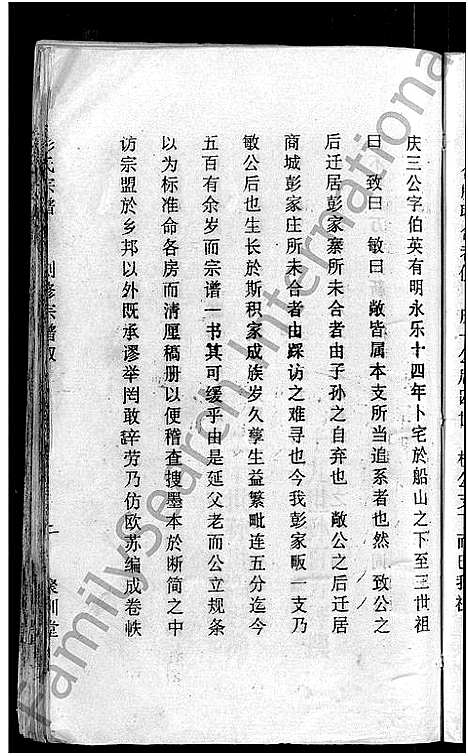 庆三公字伯英有明永乐十四年卜宅於船山之下至三世祖
曰 致曰 敏曰 敞皆属本支所当追系者也然 致公之
后迁居彭家寨所未合者由子孙之自弃也 敞公之后迁居
商城彭家庄所未合者由踩访之难寻也今我彭家畈一支乃
敏公后也生长於斯积家成族岁久孳生益繁毗连五分迄今
五百有余岁而宗谱一书其可缓乎由是延父老而公立规条
以为标准命各房而清厘稿册以便稽查搜墨本於断简之中
访宗盟於乡邦以外既承谬举罔敢辞劳乃仿欧苏编成卷帙
彭氏宗谱 创修宗谱叙 二 聚训堂
FamilySearch International